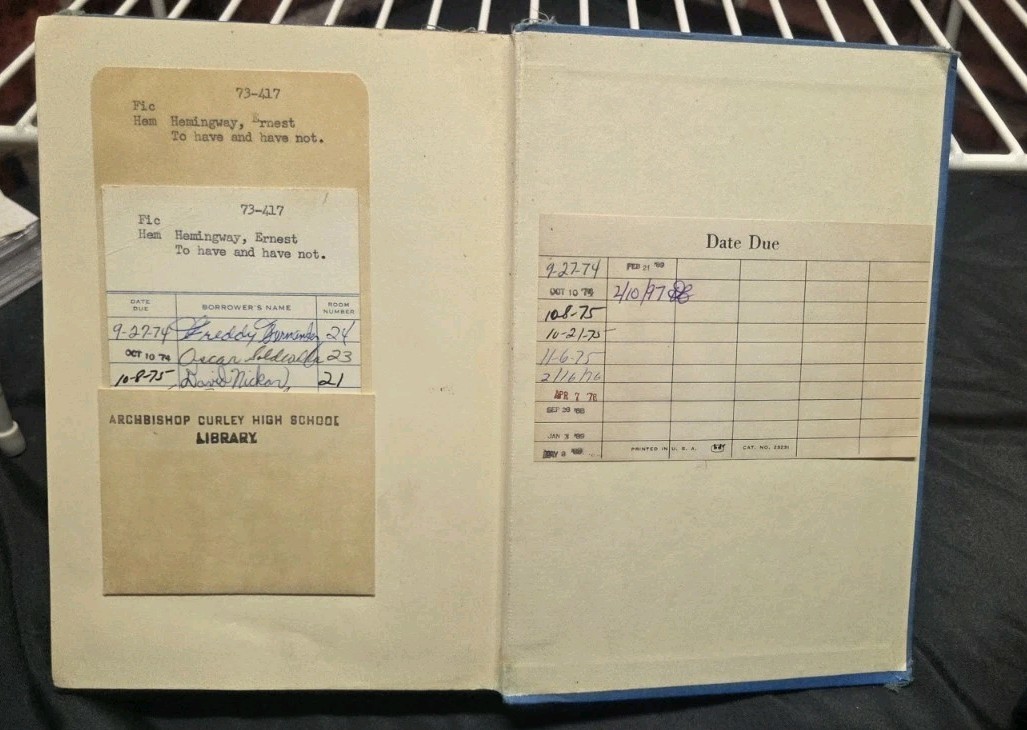 73-417
Fic
Hem Hemingway, Ernest
To have and have not.
73-417
Fic
Hem Hemingway, Ernest
To have and have not.
DATE DUE
BORROWER'S NAME
ROOM NUMBER
9-27-74 Freddy 24
OCT 10 74 Oscar 23
10-8-75 David 21
ARCHBISHOP CURLEY HIGH SCHOOL
LIBRARY
Date Due
9-27-74 FEB 21
OCT 10 '74 2/10/97
10-8-75
10-21-75
11-6-75
2/16/76
APR 7 76
SEP 29 '88
JAN 3 '89
MAY 8
PRINTED IN U. S. A. CAT. NO. 23231